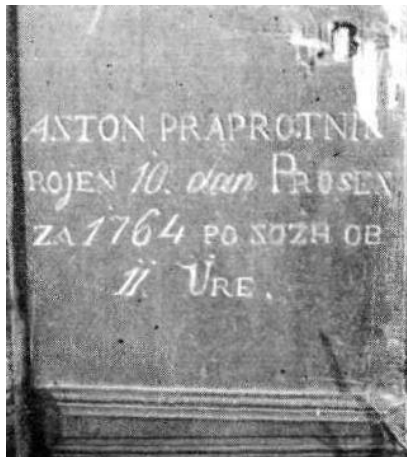 ANTON PRAPROTNIK
ROJEN 10. dan PROSEN
ZA 1764 PO NOZH OB
11 URE.